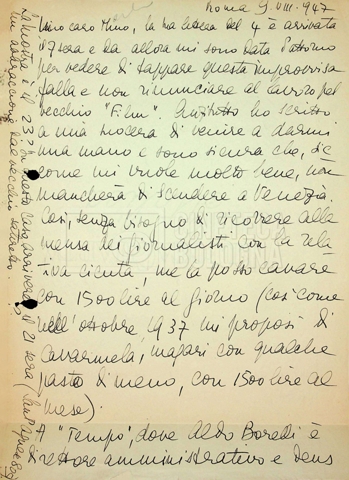 Roma 9.VIII.947
Mino caro Mino, la tua lettera del 4 è arrivata
il 7 sera e da allora mi sono data d'attorno
per vedere di tappare questa improvvisa
falla e non rinunciare al lavoro pel
vecchio "Film". Anzitutto ho scritto
a una di venire a darmi
una mano e sono sicura che, sic
come mi vuole molto bene, non
mancherà di scendere a Venezia.
Così, senza bisogno di ricorrere alla
mensa dei giornalisti con la rela
tiva cicuta, me la posso cavare
con 1500 lire al giorno (così come
nell'ottobre 1937 mi proposi di
cavarmela, magari con qualche
pasto di meno, con 1500 lire al
mese).
A "Tempo", dove Aldo Borelli è
direttore amministrativo e
La mostra è il 23? In questo caso arriverò il 21 sera
un abbraccione dal vecchio